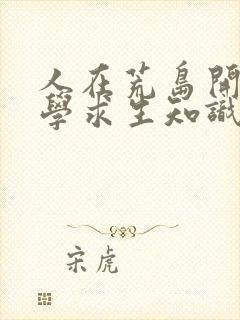 人在荒島開
學求生知識
宋虎